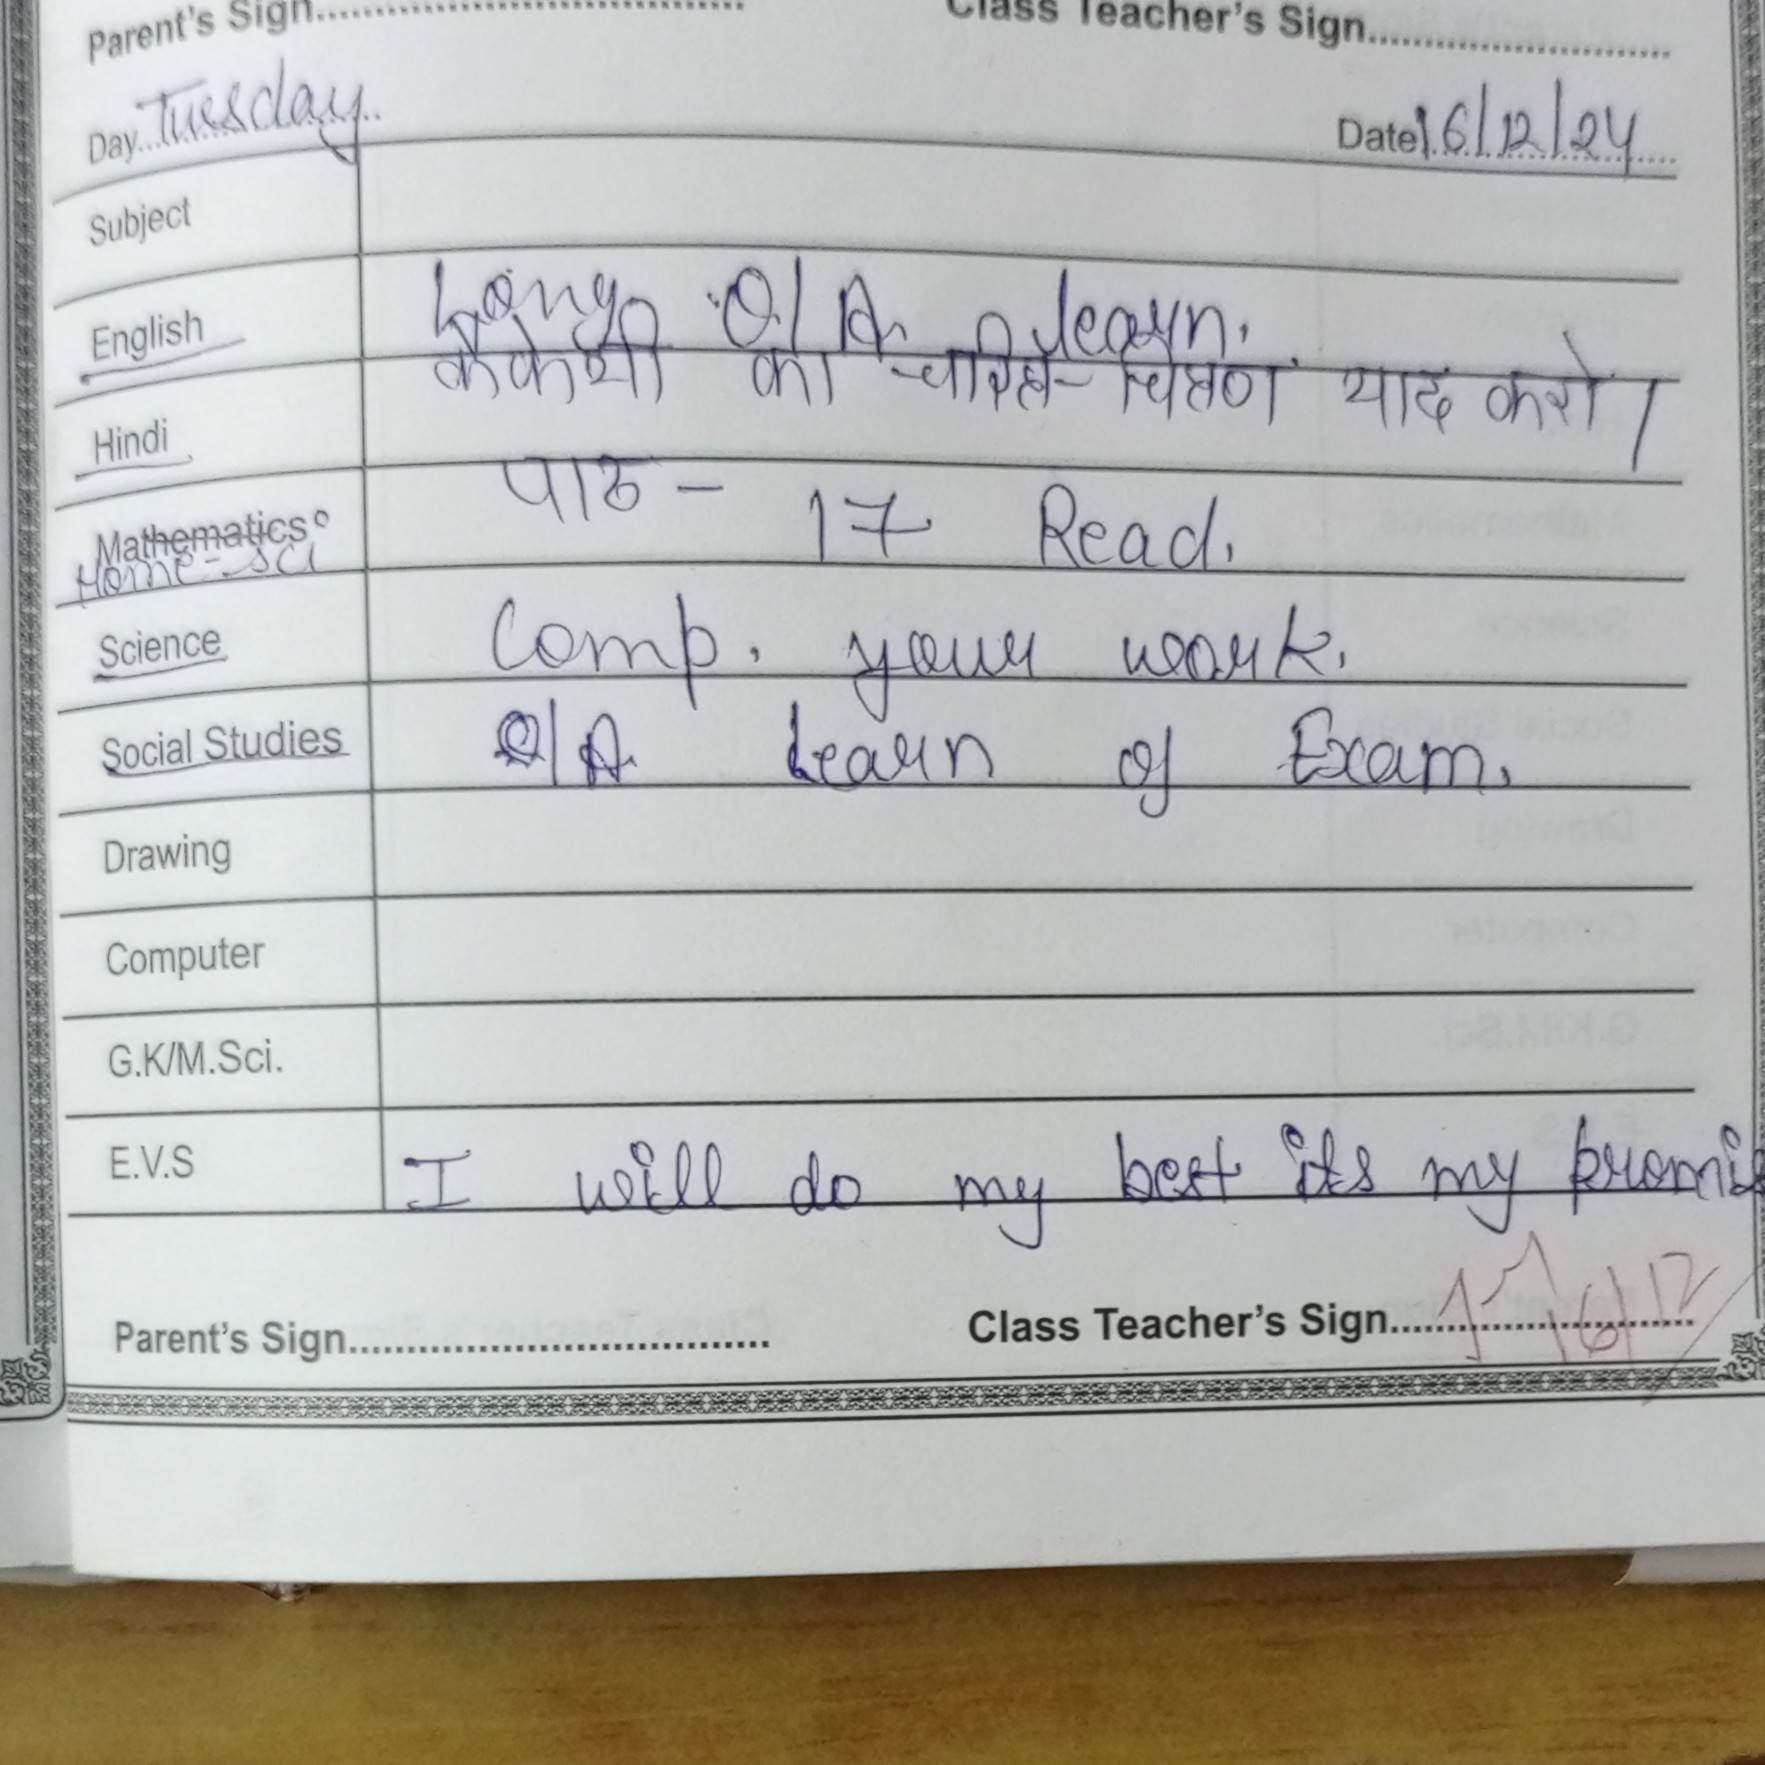 Parent's Sign........................ Class Teacher's Sign........................
Day...Tuesday.. Date16/12/24
Subject
English Long Q/A learn.
Hindi कैकेयी का चरित्र-चित्रण याद करो।
Mathematics पाठ - 17 Read.
Home-Sci
Science Comp. your work.
Social Studies Q/A Learn of Exam.
Drawing
Computer
G.K/M.Sci.
E.V.S I will do my best its my promis
Parent's Sign.................................... Class Teacher's Sign........................ 16/12